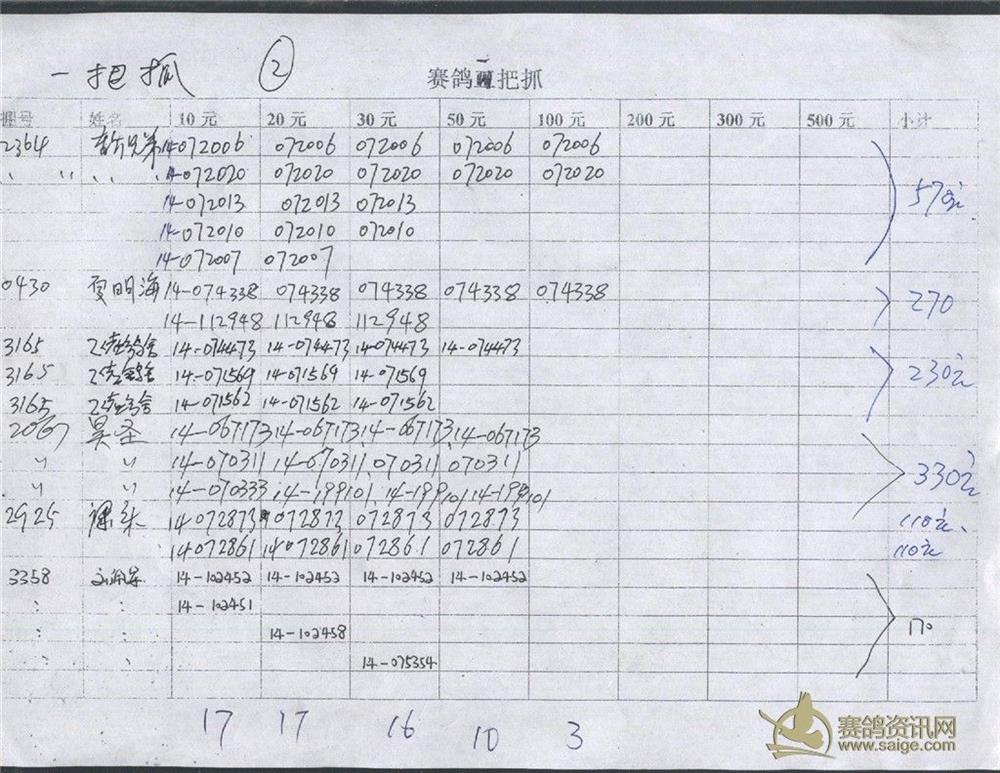 一把抓 ②
赛鸽 把抓
棚号 姓名 10 元 20 元 30 元 50 元 100 元 200 元 300 元 500 元 小计
2364 兄弟 14-072006 072006 072006 072006 072006
〃 〃 14-072020 072020 072020 072020 072020 570元
14-072013 072013 072013
14-072010 072010 072010
14-072007 072007
0430 夏明海 14-074338 074338 074338 074338 074338 270
14-112948 112948 112948
3165 14-074473 14-074473 14-074473 14-074473
3165 14-071569 14-071569 14-071569 230元
3165 14-071562 14-071562 14-071562
2067 吴圣 14-067173 14-067173 14-067173 14-067173
〃 〃 14-070311 14-070311 070311 070311 330元
〃 〃 14-070333 14-199101 14-199101 14-199101
2925 14-072873 072873 072873 072873 110元
14-072861 14-072861 072861 072861 110元
3358 14-102452 14-102452 14-102452 14-102452
14-102451
14-102458 170
14-075354
17 17 16 10 3
赛鸽资讯网
www.saige.com